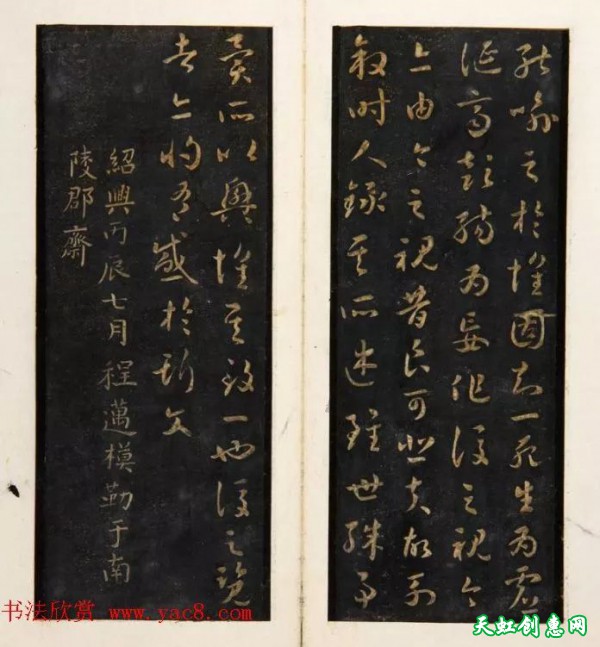 能喻之於懷固知一死生為虛
誕齊彭殤為妄作後之視今
亦由今之視昔良可悲夫故列
叙時人錄其所述雖世殊事
異所以興懷其致一也後之覽
者亦將有感於斯文
紹興丙辰七月程邁模勒于南
陵郡齋
书法欣赏 www.yac8.com
天虹创惠网